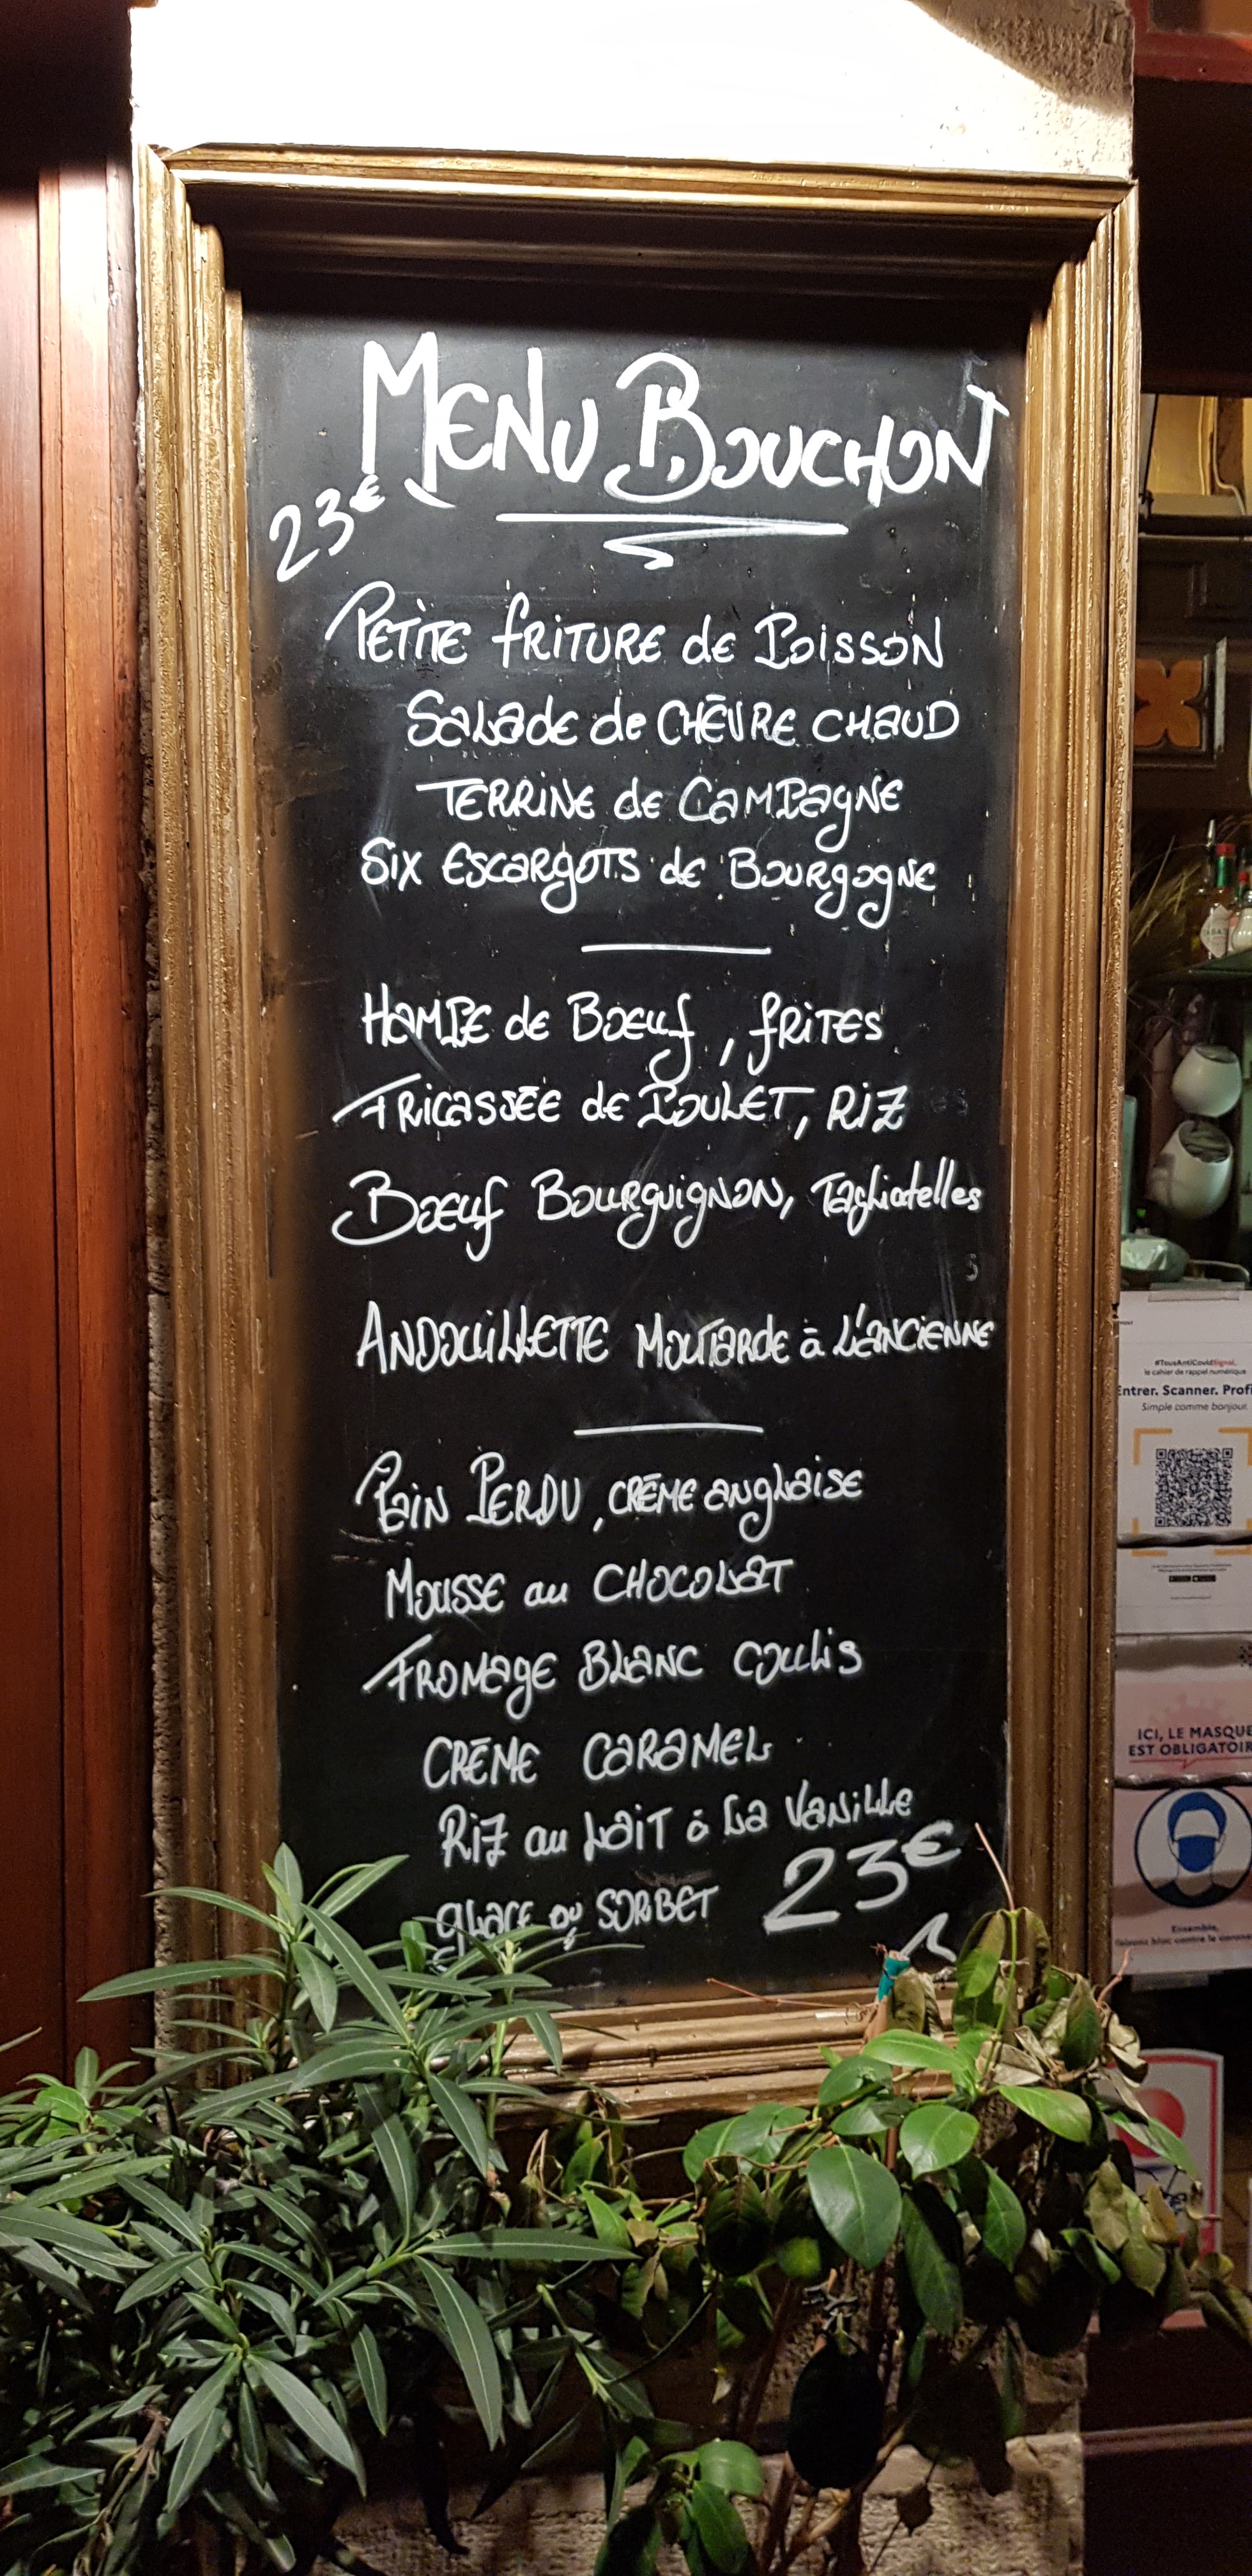 MENU BOUCHON
23€
PETITE FRITURE de POISSON
SALADE de CHÈVRE CHAUD
TERRINE de CAMPAGNE
SIX ESCARGOTS de BOURGOGNE
HAMPE de BŒUF, FRITES
FRICASSÉE de POULET, RIZ
BŒUF BOURGUIGNON, Tagliatelles
ANDOUILLETTE MOUTARDE à L'ANCIENNE
PAIN PERDU, CRÈME ANGLAISE
MOUSSE au CHOCOLAT
FROMAGE BLANC COULIS
CRÈME CARAMEL
RIZ au LAIT à La VANILLE
GLACE OU SORBET 23€
#TousAntiCovidSignal,
le cahier de rappel numérique
Entrer. Scanner. Profi
Simple comme bonjour.
ICI, LE MASQUE
EST OBLIGATOIR
Ensemble,